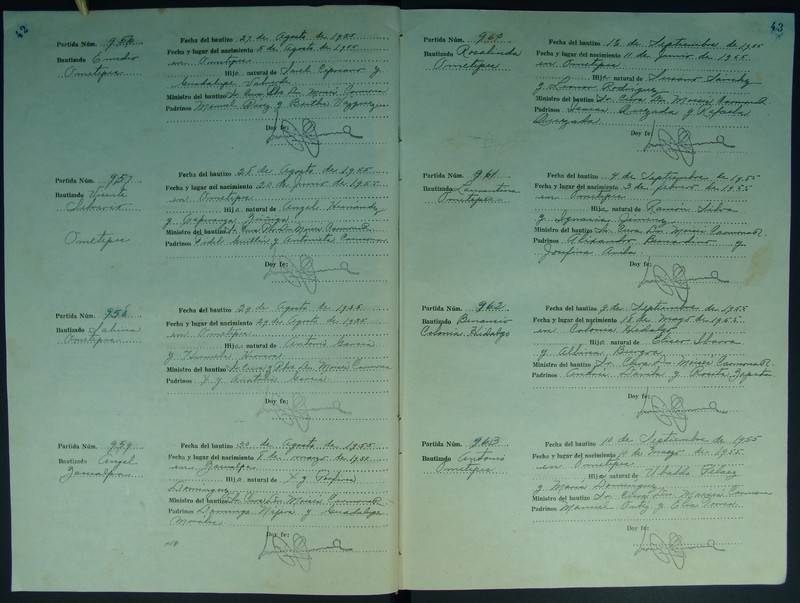 42
Partida Núm. 956
Bautizado
Ometepec
Fecha del bautizo 27 de Agosto de 1955
Fecha y lugar del nacimiento 8 de Agosto de 1955
en Ometepec
Hijo natural de y
Guadalupe
Ministro del bautizo Sr. Cura Dn. Moisés Carmona
Padrinos Manuel y Bertha
Doy fe:
Partida Núm. 957
Bautizado Vicente
Silverio
Ometepec
Fecha del bautizo 28 de Agosto de 1955
Fecha y lugar del nacimiento 20 de Junio de 1955
en Ometepec
Hijo natural de Angel Hernández
y Esperanza Zúñiga
Ministro del bautizo Sr. Cura Dn. Moisés Carmona R.
Padrinos Fidel y Antonieta Carmona
Doy fe:
Partida Núm. 958
Bautizado Sabina
Ometepec
Fecha del bautizo 29 de Agosto de 1955
Fecha y lugar del nacimiento 29 de Agosto de 1955
en Ometepec
Hija natural de Antonio García
y
Ministro del bautizo Sr. Cura Dn. Moisés Carmona
Padrinos X y Anatolia García
Doy fe:
Partida Núm. 959
Bautizado Angel
Fecha del bautizo 30 de Agosto de 1955
Fecha y lugar del nacimiento 8 de marzo de 1955
en
Hijo natural de X y Porfiria
Domínguez
Ministro del bautizo Sr. Cura Dn. Moisés Carmona R.
Padrinos Domingo y Guadalupe
Morales
Doy fe:
43
Partida Núm. 960
Bautizado Rosalinda
Ometepec
Fecha del bautizo 16 de Septiembre de 1955
Fecha y lugar del nacimiento 11 de Junio de 1955
en Ometepec
Hija natural de Susano Sánchez
y Leonor Rodríguez
Ministro del bautizo Sr. Cura Dn. Moisés Carmona R.
Padrinos Quezada y Rafaela
Quezada
Doy fe:
Partida Núm. 961
Bautizado
Ometepec
Fecha del bautizo 4 de Septiembre de 1955
Fecha y lugar del nacimiento 3 de febrero de 1955
en Ometepec
Hija natural de Ramón Silva
y Ignacia Jiménez
Ministro del bautizo Sr. Cura Dn. Moisés Carmona R.
Padrinos Alejandro Bernardino y
Josefina Avila
Doy fe:
Partida Núm. 962
Bautizado Benancio
Colonia Hidalgo
Fecha del bautizo 9 de Septiembre de 1955
Fecha y lugar del nacimiento 18 de Mayo de 1955
en Colonia Hidalgo
Hijo natural de Eliseo Ibarra
y Albina Burgoa
Ministro del bautizo Sr. Cura Dn. Moisés Carmona R.
Padrinos Andrés y Rosita Zapata
Doy fe:
Partida Núm. 963
Bautizado Antonio
Ometepec
Fecha del bautizo 10 de Septiembre de 1955
Fecha y lugar del nacimiento 10 de Mayo de 1955
en Ometepec
Hijo natural de Ubaldo Peláez
y María Domínguez
Ministro del bautizo Sr. Cura Dn. Moisés Carmona
Padrinos Manuel y Elva
Doy fe: